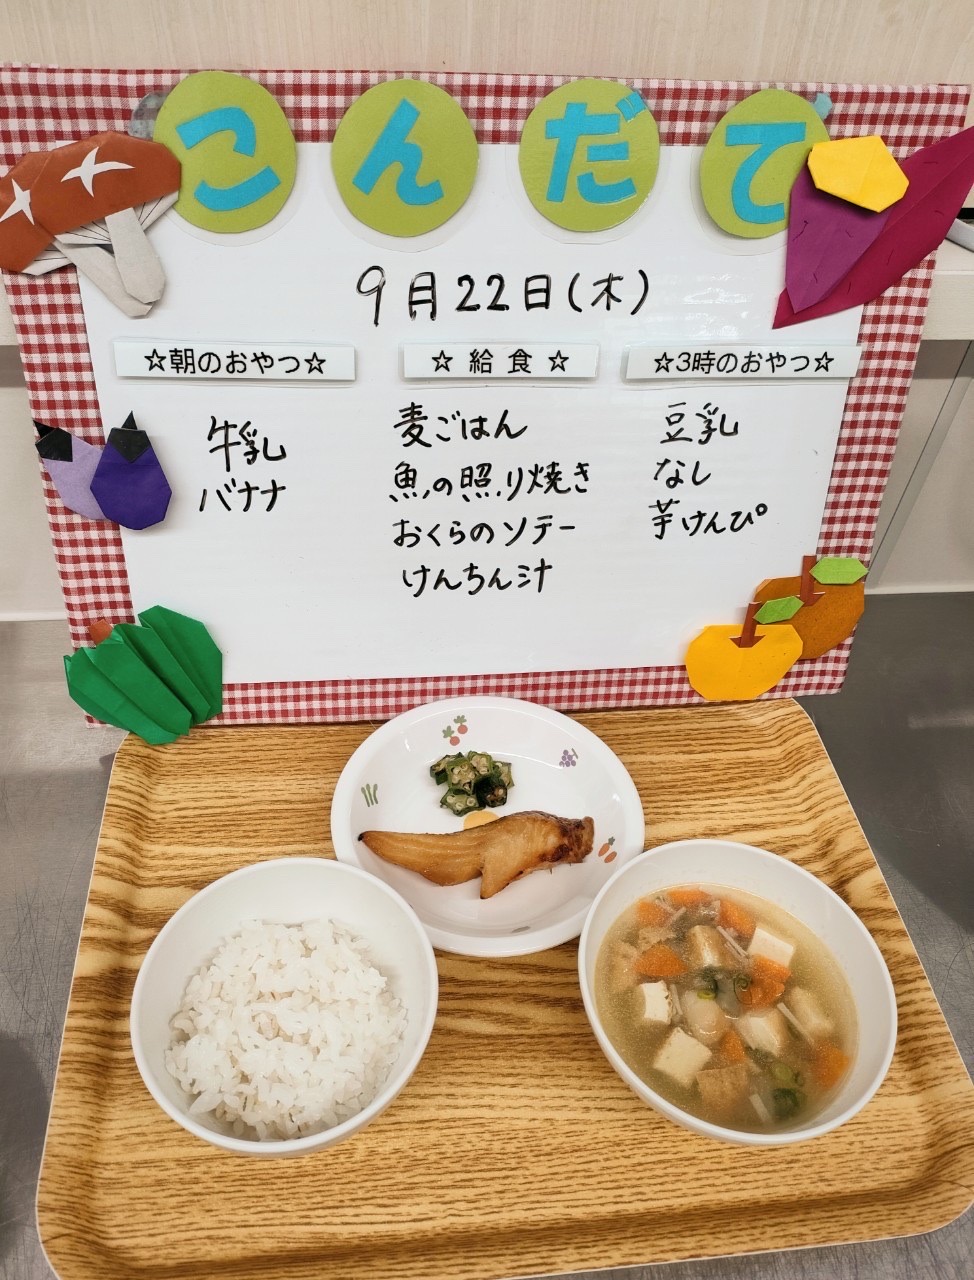 こんだて
9月22日(木)
☆朝のおやつ☆
牛乳
バナナ
☆給食☆
麦ごはん
魚の照り焼き
おくらのソテー
けんちん汁
☆3時のおやつ☆
豆乳
なし
芋けんぴ